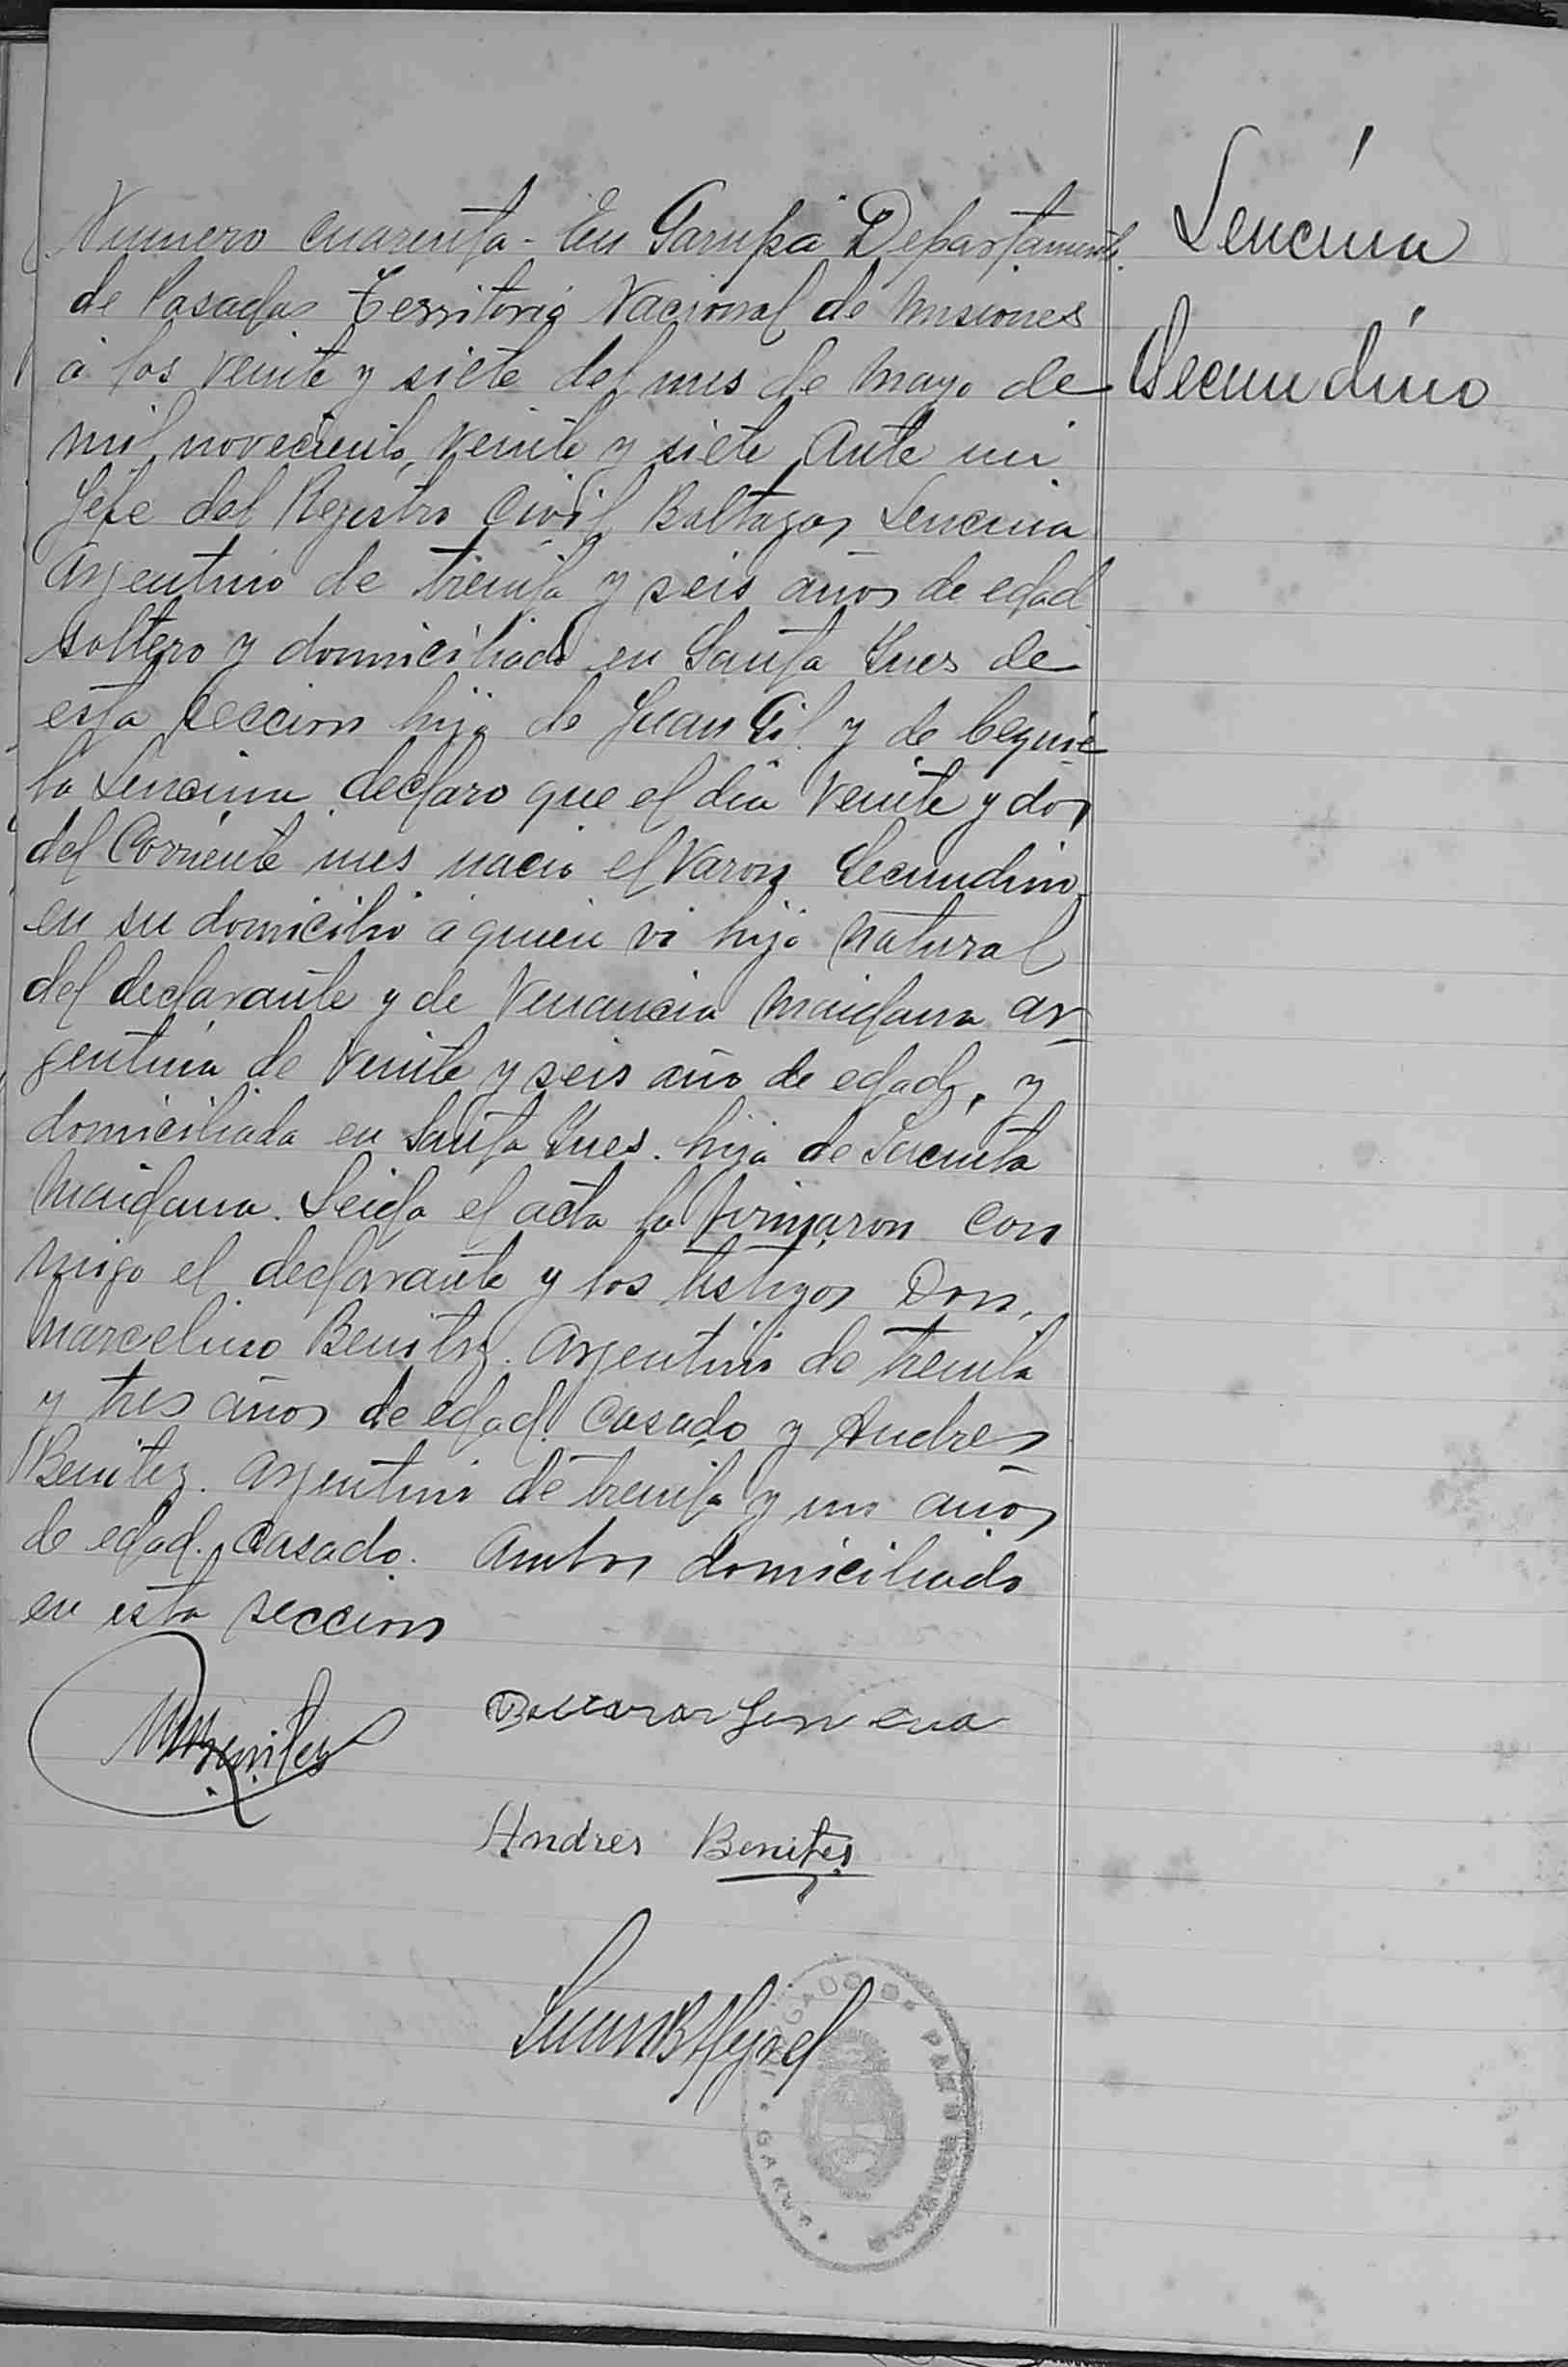 Lencina
Secundino
Numero cuarenta - En Garupá Departamento
de Posadas Territorio Nacional de Misiones
á los veinte y siete del mes de Mayo de
mil novecientos veinte y siete Ante mi
Jefe del Registro Civil Baltazar Lencina
Argentino de treinta y seis años de edad
soltero y domiciliado en Santa Ines de
esta seccion hijo de Juan Gil y de
la Lencina declaro que el dia veinte y dos
del Corriente mes nacio el Varon Secundino
en su domicilio á quien vi hijo natural
del declarante y de Venancia Maidana ar
gentina de veinte y seis año de edad, y
domiciliada en Santa Ines. hija de Jacinta
Maidana. Leida el acta la firmaron con
migo el declarante y los testigos Don.
Marcelino Benitez. Argentino de treinta
y tres años de edad Casado y Andres
Benitez. Argentino de treinta y un años
de edad. Casado. Ambos domiciliado
en esta seccion
Andres Benites
JUZGADO DE PAZ
GARUPA